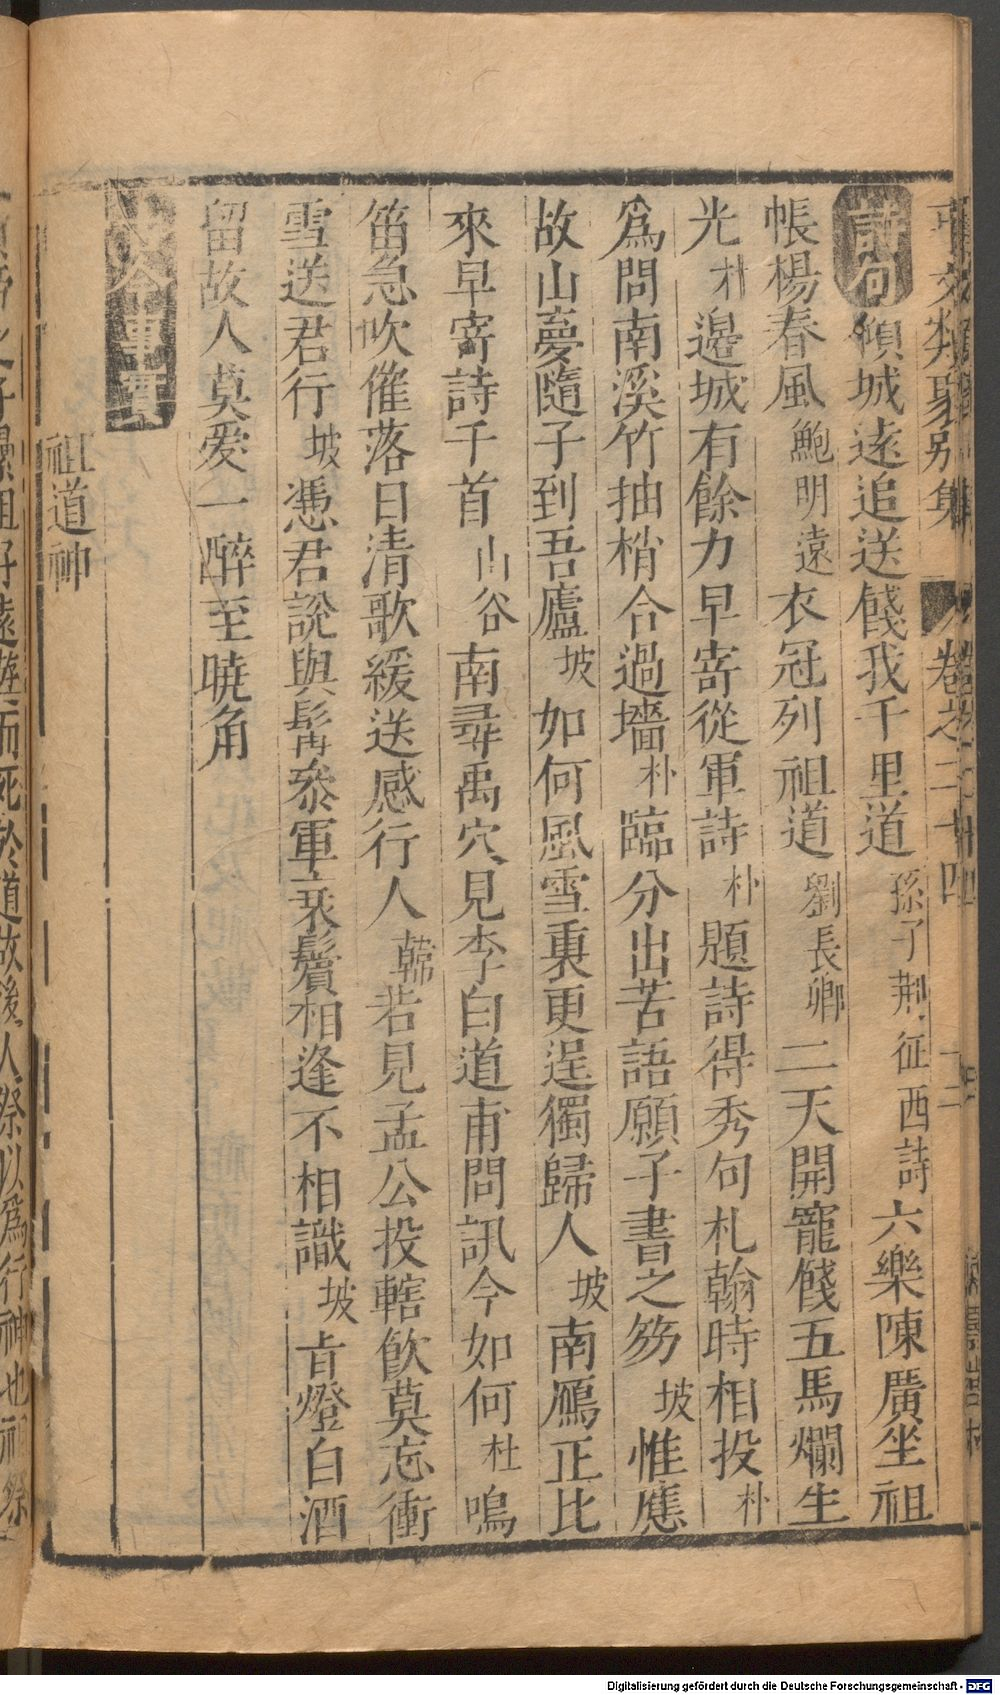 事文類聚別集 卷之二十四 十二
詩句 傾城遠追送餞我千里道 孫子荆征西詩 六樂陳廣坐祖
帳楊春風 鮑明遠 衣冠列祖道 劉長卿 二天開寵餞五馬爛生
光 朴 邉城有餘力早寄從軍詩 朴 題詩得秀句札翰時相投 朴
爲問南溪竹抽梢合過墻 朴 臨分出苦語願子書之笏 坡 惟應
故山夢隨子到吾廬 坡 如何風雪裏更逞獨歸人 坡 南鴈正比
來早寄詩千首 山谷 南尋禹穴見李白道甫問訊今如何 杜 鳴
笛急吹催落日清歌緩送感行人 韓 若見孟公投轄飮莫忘衝
雪送君行 坡 憑君說與髯叅軍 鬢相逢不相識 坡 燈白酒
留故人莫爱一醉至曉角
古今事實
祖道神
子纍祖好遠遊而死於道故後人祭以爲行神也祖祭
Digitalisierung gefördert durch die Deutsche Forschungsgemeinschaft - DFG